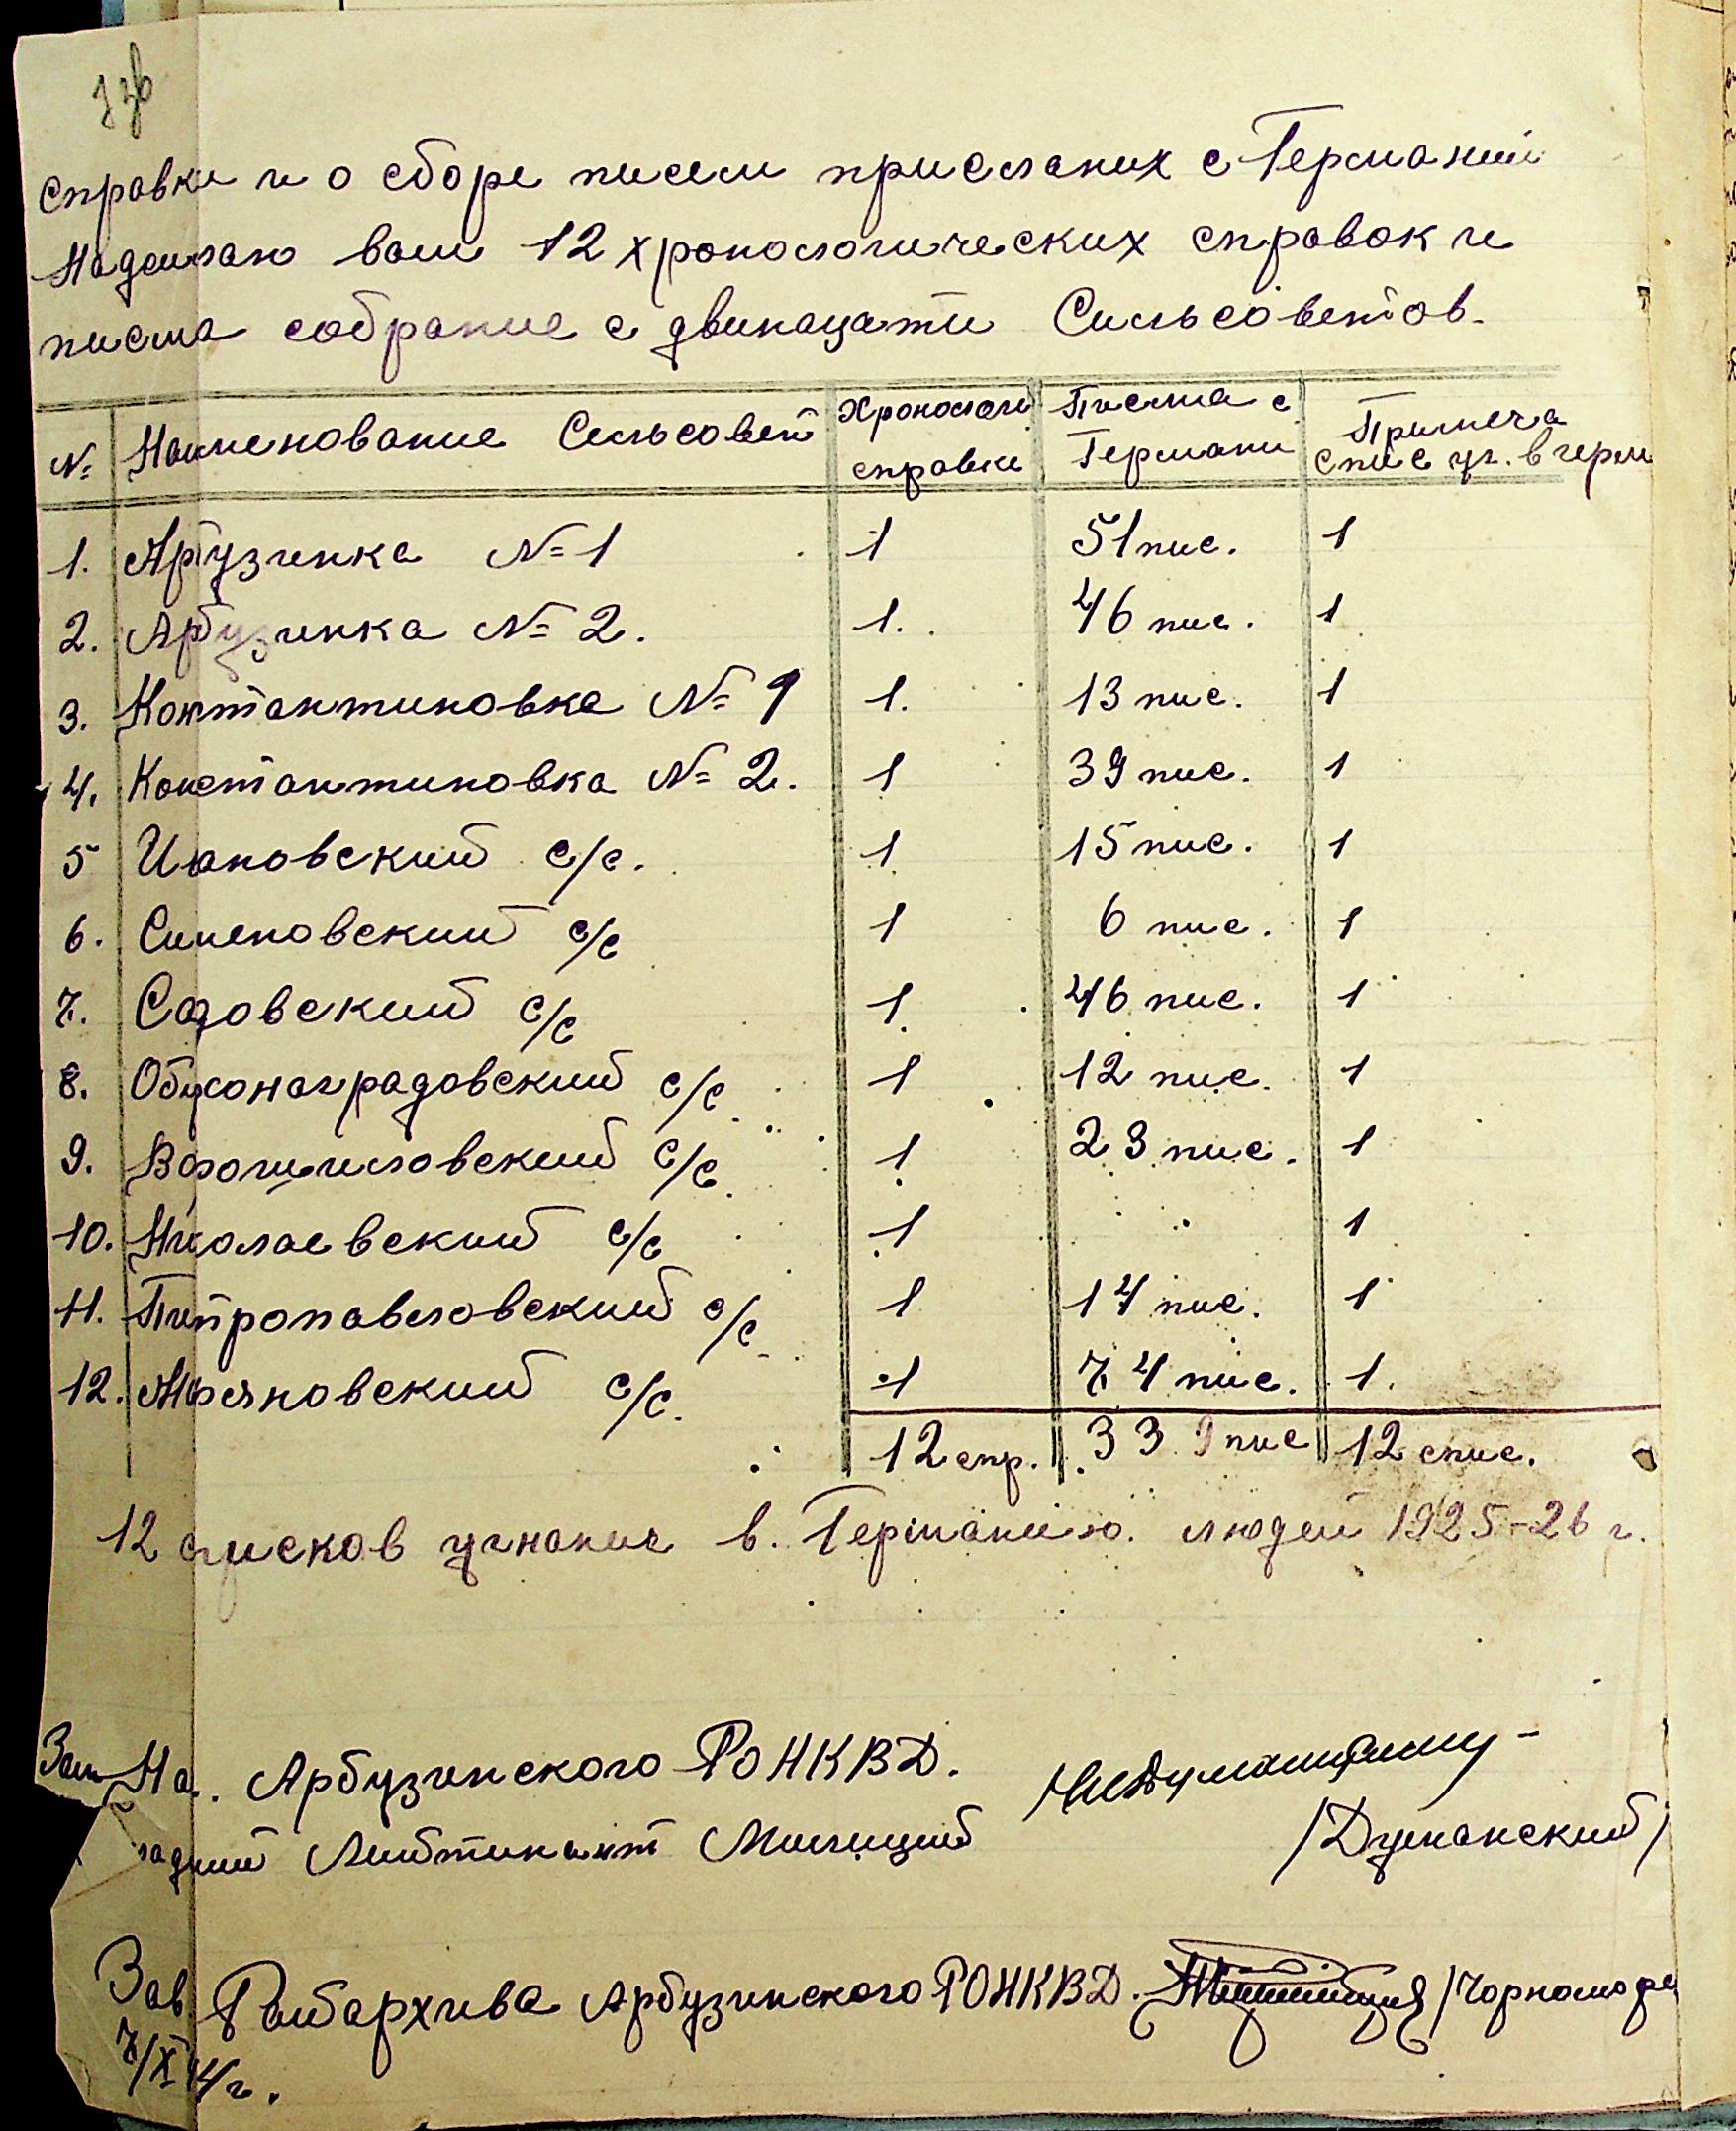 справки и о сборе писем присланих с Германии
Надсилаю вам 12 хронологических справок и
писма собрание с двинацати Сильсоветов.
№ Наименование Сельсовет Хронологи справки Писма с Германи Примеча спис уг. в герм
1. Арбузинка № 1 1 51 пис. 1
2. Арбузинка № 2. 1. 46 пис. 1
3. Контантиновка № 1 1. 13 пис. 1
4. Константиновка № 2. 1 39 пис. 1
5 Ивановский с/с. 1 15 пис. 1
6. Семеновский с/с 1 6 пис. 1
7. Садовский с/с 1 46 пис. 1
8. с/с 1 12 пис. 1
9. Ворошиловский с/с 1 23 пис. 1
10. Николаевский с/с 1 1
11. Питропавловский с/с 1 14 пис. 1
12. с/с. 1 74 пис. 1.
12 спр. 339 пис 12 спис.
12 списков угнание в. Германию. людей 1925-26 г.
Зам На. Арбузинского РОНКВД.
Лийтинант /Думанский/
Зав Райархива Арбузинского РОНКВД.
7/XI 44г.